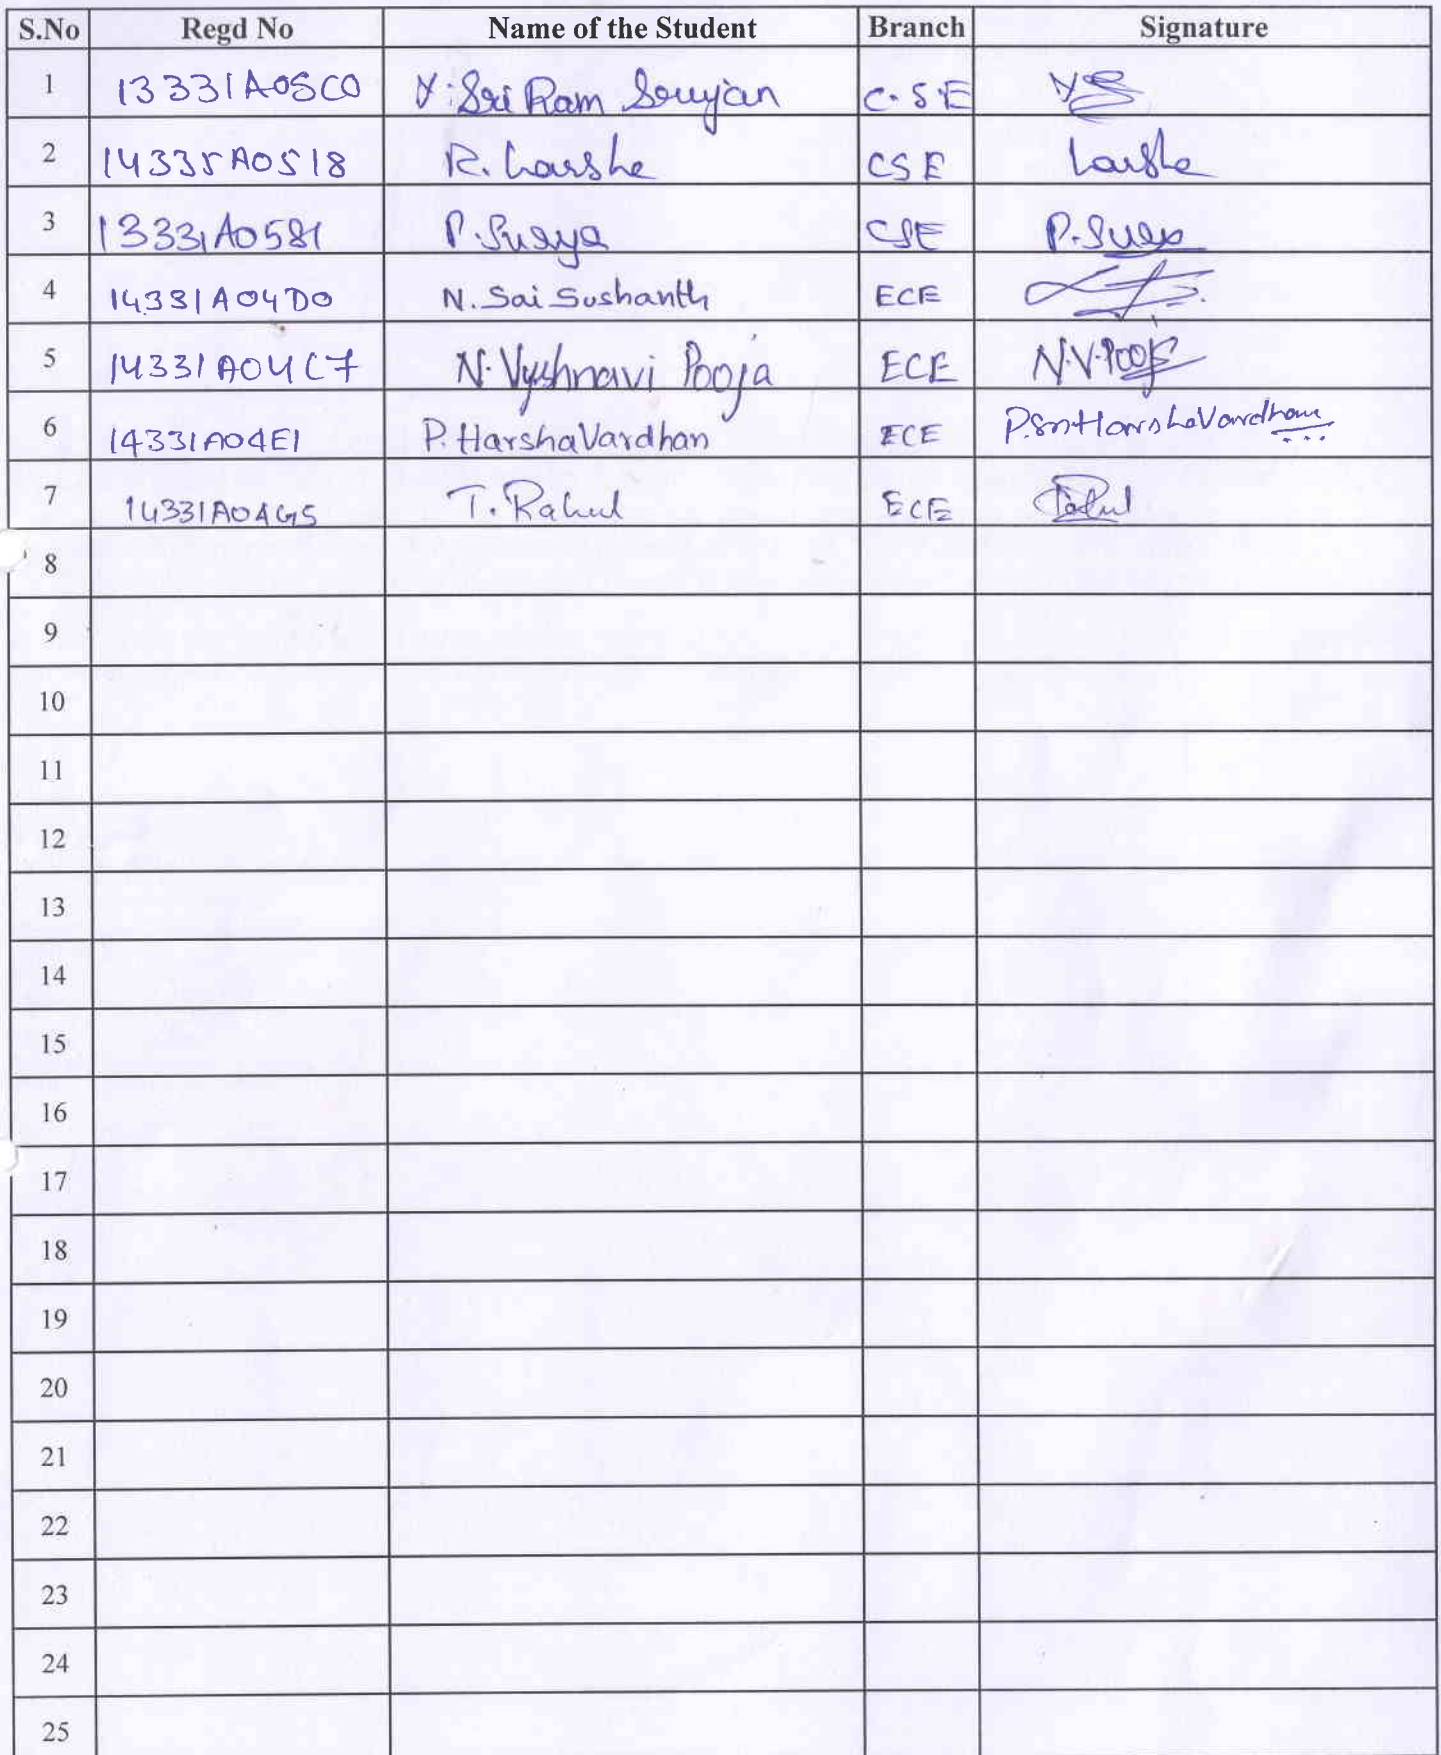 S.No Regd No Name of the Student Branch Signature
1 13331A05C0 Y. Sri Ram Srujan C.S.E
2 14335A0518 R. harsha CSE harsha
3 13331A0581 P. Surya CSE P. Surya
4 14331A04D0 N. Sai Sushanth ECE
5 14331A04C7 N. Vyshnavi Pooja ECE N.V. Pooja
6 14331A04E1 P. HarshaVardhan ECE HarshaVardhan
7 14331A04G5 T. Rahul ECE Rahul
8
9
10
11
12
13
14
15
16
17
18
19
20
21
22
23
24
25